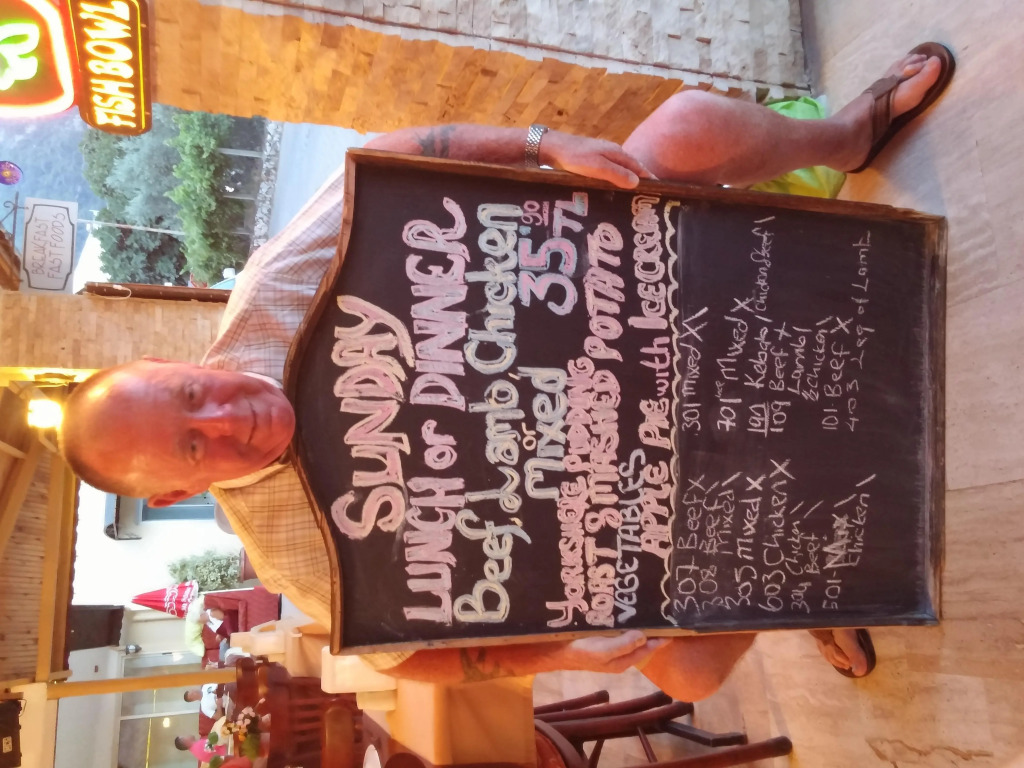 FISH BOWL
BREAKFAST
FAST FOODS
SUNDAY
LUNCH or DINNER
Beef, Lamb Chicken
or
Mixed 35.90 TL
YORKSHIRE PUDING
ROST & MASHED POTATO
VEGETABLES
APPLE PIE with ICECREAM
307 Beef X
308 Beef X
Mixed \
305 Mixed X
603 Chicken X
Chicken \
Beef \
501
Chicken \
301 Mixed X \
701 Mixed X
109 Beef X
Lamb \
2 Chicken \
101 Beef X
403 2 leg of Lamb